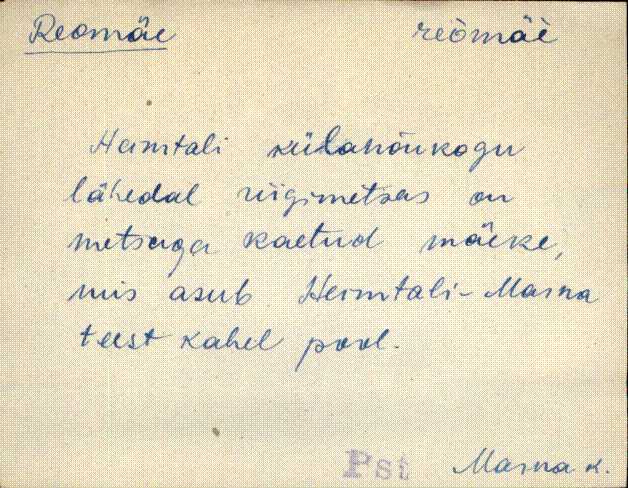 Reomäe reòmäè
Heimtali külanõukogu
lähedal riigimetsas on
metsaga kaetud mäeke,
mis asub Heimtali-Marna
teest kahel pool.
Pst Marna k.